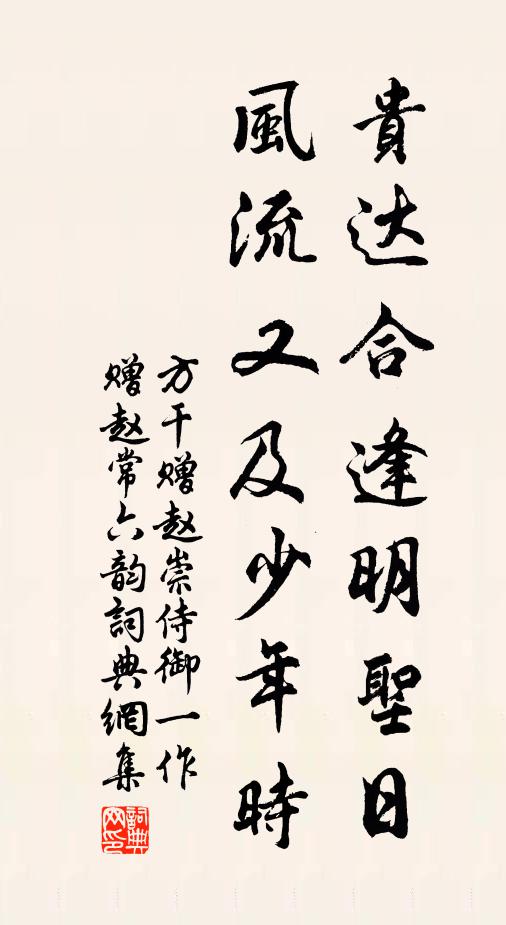 貴达合逢明聖日
風流又及少年時
方干赠赵崇侍御一作
赠赵常六韵詞典網集
詞典
网印